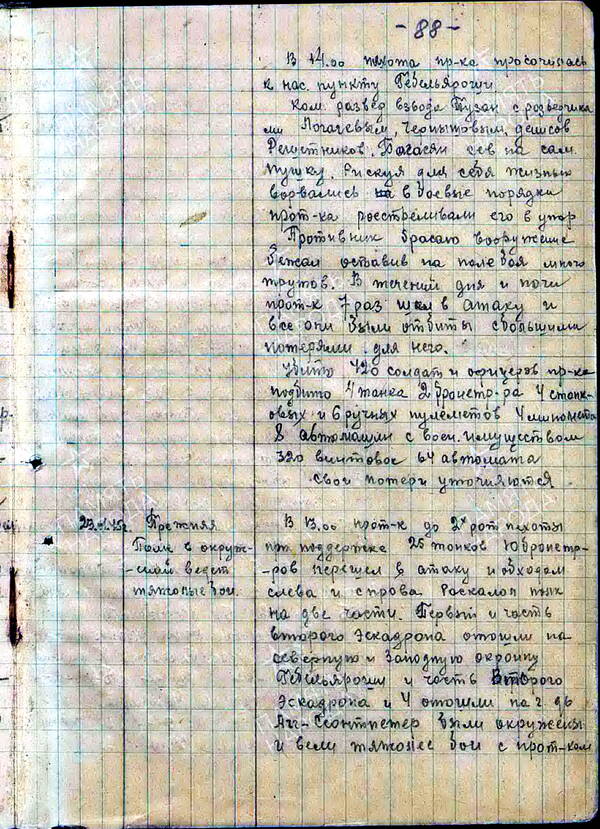 -88-
В 14.00 пехота пр-ка просочилась
к нас. пункту Гебельярош
Ком. развед взвода Пузан с разведчика
ми Логачевым, Чернышовым, денисов
Решетников. Багасян сев на сам.
пушку. Рискуя для себя жизнью
ворвались в боевые порядки
прот-ка расстреливали его в упор
Противник бросая вооружение
бежал оставив на поле боя много
трупов. В течении дня и ночи
прот-к 7 раз шел в атаку и
все они были отбиты с большими
потерями для него.
Убито 420 солдат и офицеров пр-ка
подбито 4 танка 2 бронетр-ра 4 станк-
овых и 6 ручных пулеметов 4 миномета
8 автомашин с воен. имуществом
320 винтовок 64 автомата
свои потери уточняются
23.1.45г. Прежняя
Полк в окруж-
-ении ведет
тяжолые бои.
В 13.00 прот-к до 2х рот пехоты
при поддержке 25 танков 10 бронетр-
-ров перешел в атаку и обходом
слева и справа расколол полк
на две части. Первый и часть
второго Эскадрона отошли на
северную и Западную окраину
Гебельярош и часть второго
Эскадрона и 4 отошли на г. дв
были окружены
и вели тяжолые бои с прот-ком